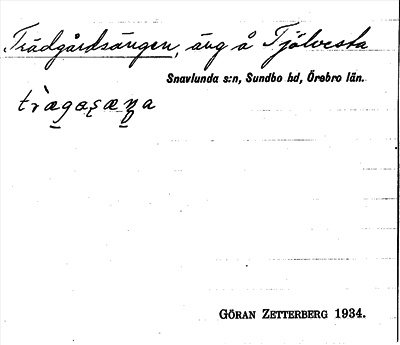 Trädgårdsängen, äng å Tjälvesta
Snavlunda s:n, Sundbo hd, Örebro län.
GÖRAN ZETTERBERG 1934.